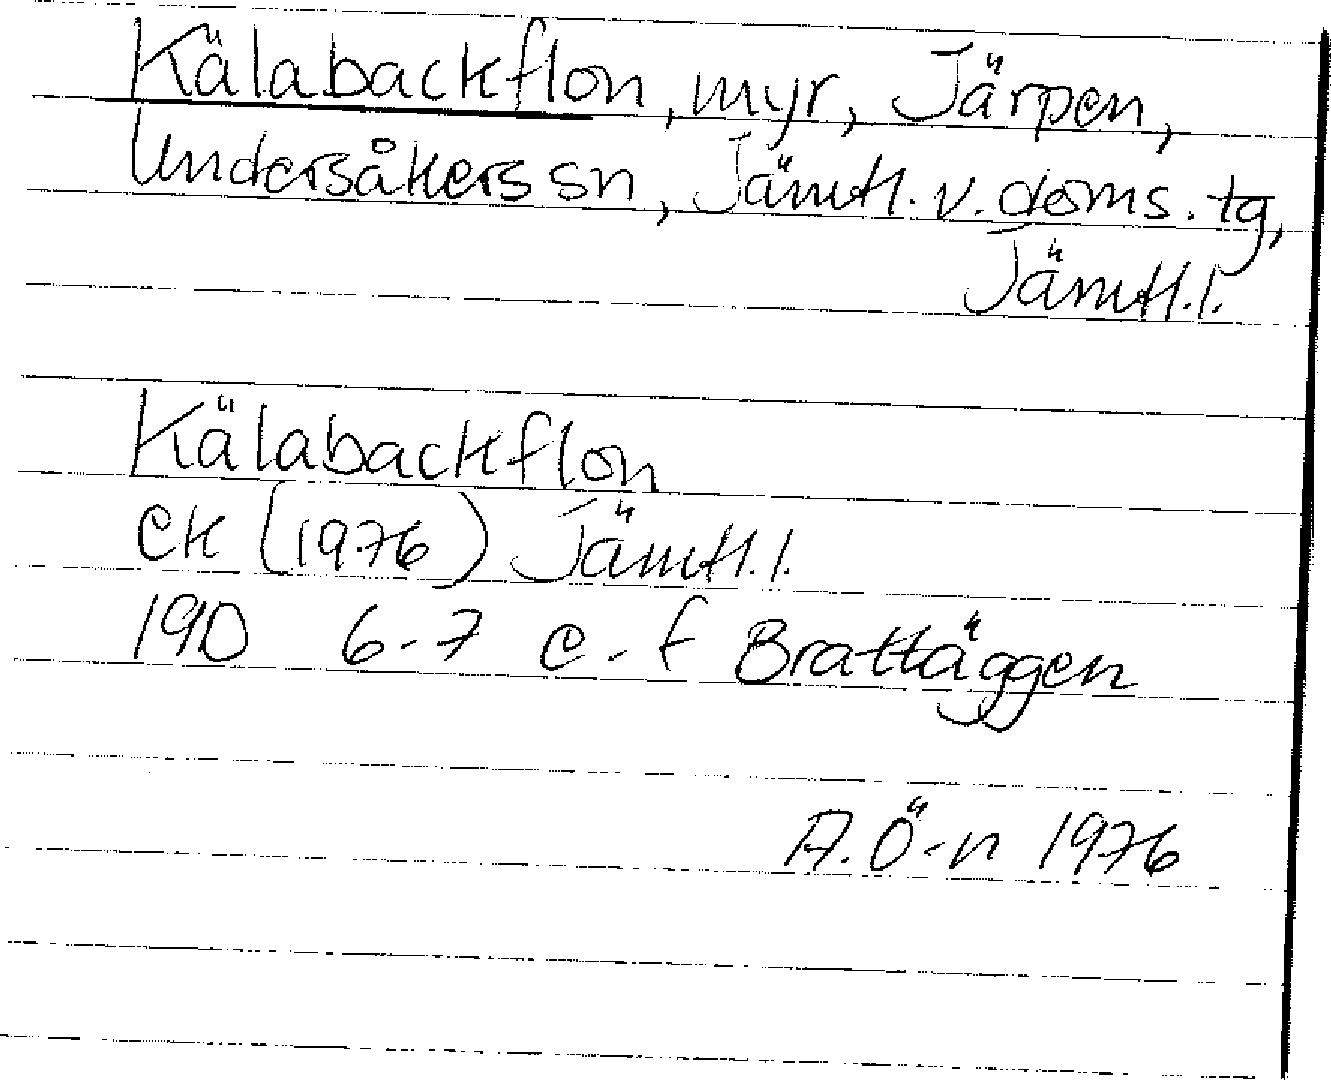 Kälabackflon, myr, Järpen,
Undersåkers sn, Jämtl. v. doms. tg,
Jämtl. l.
Kälabackflon
ek (1976) Jämtl. l.
19D 6-7 e-f Brattäggen
A. Ö-n 1976